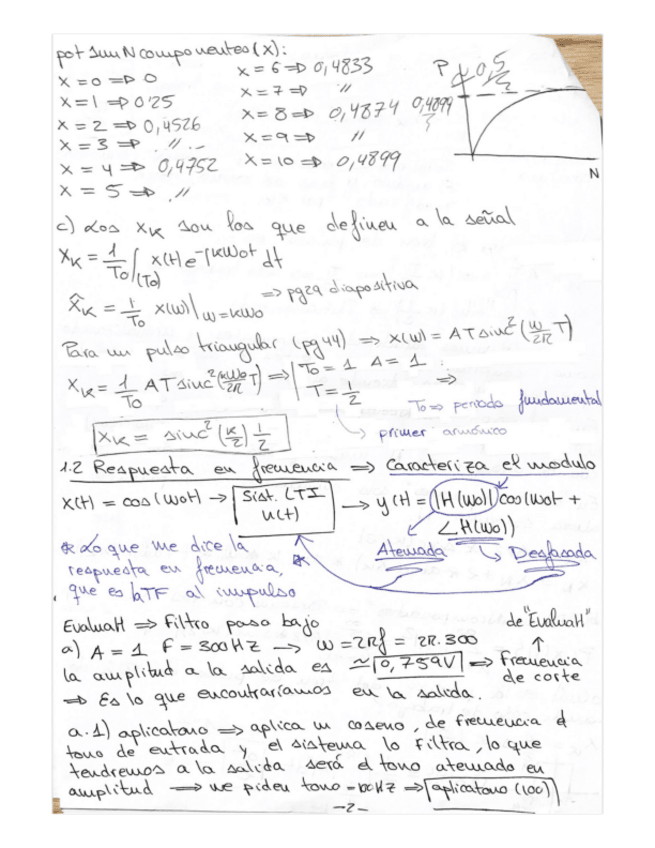 pot sum N componentes (x):
x = 0 => 0
x = 1 => 0'25
x = 2 => 0,4526
x = 3 => . // . _
x = 4 => 0,4752
x = 5 => . //
x = 6 => 0,4833
x = 7 => //
x = 8 => 0,4874 0,4899
x = 9 => //
x = 10 => 0,4899
P
0,5
N
c) Los Xk son los que definen a la señal
Xk = 1/To ∫(To) x(t) e^-jkwot dt
X̂k = 1/To X(w)|w=kwo => pg 29 diapositiva
Para un pulso triangular (pg 44) => X(w) = AT sinc²(w/2π T)
Xk = 1/To AT sinc²(kwo/2π T) => | To = 1 A = 1 T = 1/2 =>
To => periodo fundamental
primer armónico
Xk = sinc²(k/2) 1/2
1.2 Respuesta en frecuencia => Caracteriza el modulo
x(t) = cos(wot) → Sist. LTI h(t) → y(t) = |H(wo)| cos(wot +
∠H(wo))
Atenuada Desfasada
* Lo que me dice la
respuesta en frecuencia,
que es la TF al impulso
EvaluaH => Filtro paso bajo de "EvaluaH"
a) A = 1 F = 300Hz → w = 2πf = 2π.300
la amplitud a la salida es ≃ 0,759V => Frecuencia de corte
=> Es lo que encontraríamos en la salida.
a.1) aplicatono => aplica un coseno, de frecuencia el
tono de entrada y el sistema lo filtra, lo que
tendremos a la salida será el tono atenuado en
amplitud → me piden tono = 100Hz => aplicatono (100)
-2-